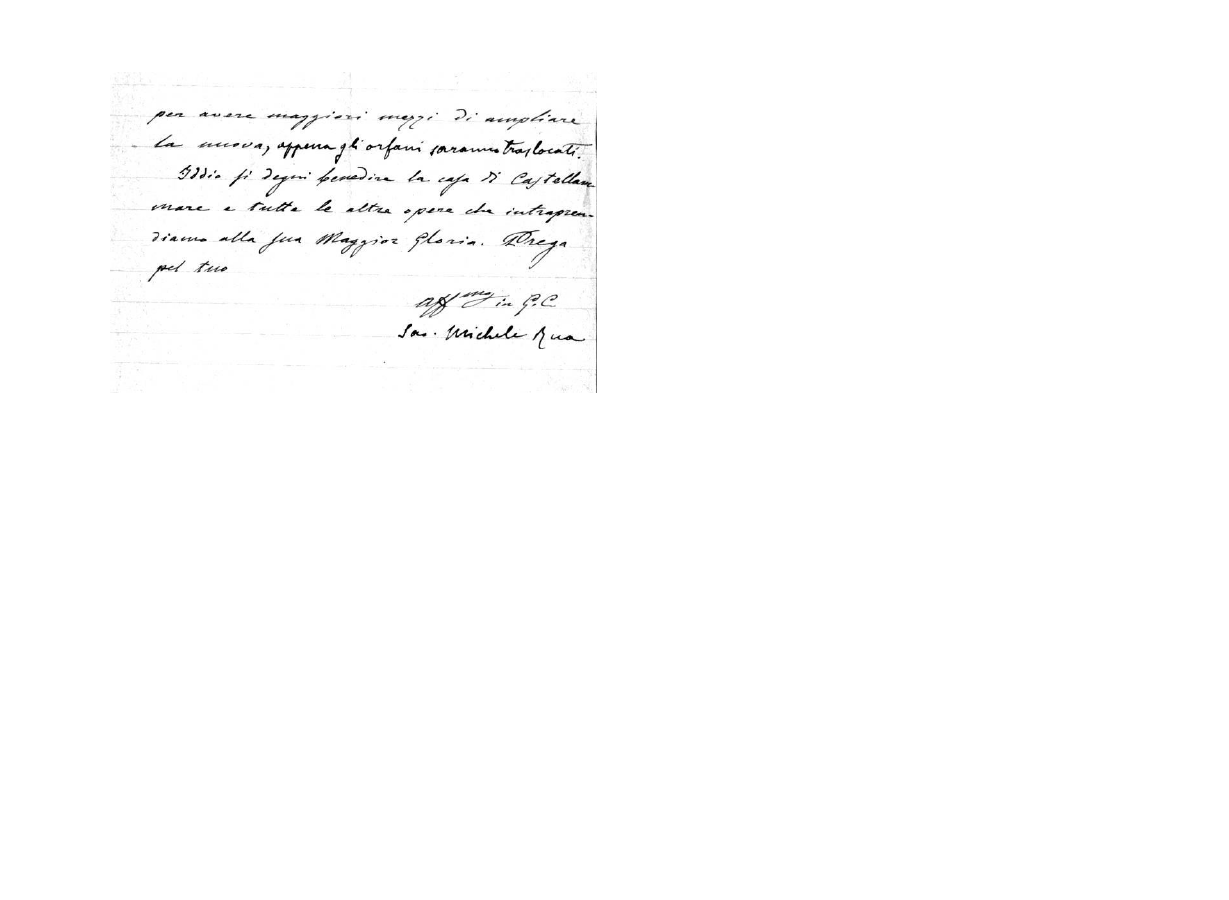 per avere maggiori mezzi di ampliare
la nuova, appena gli orfani saranno traslocati.
Iddio si degni benedire la casa di Castellam
mare e tutte le altre opere che intrapren-
diamo alla sua Maggior Gloria. Prega
pel tuo
aff.mo in G.C.
Sac. Michele Rua